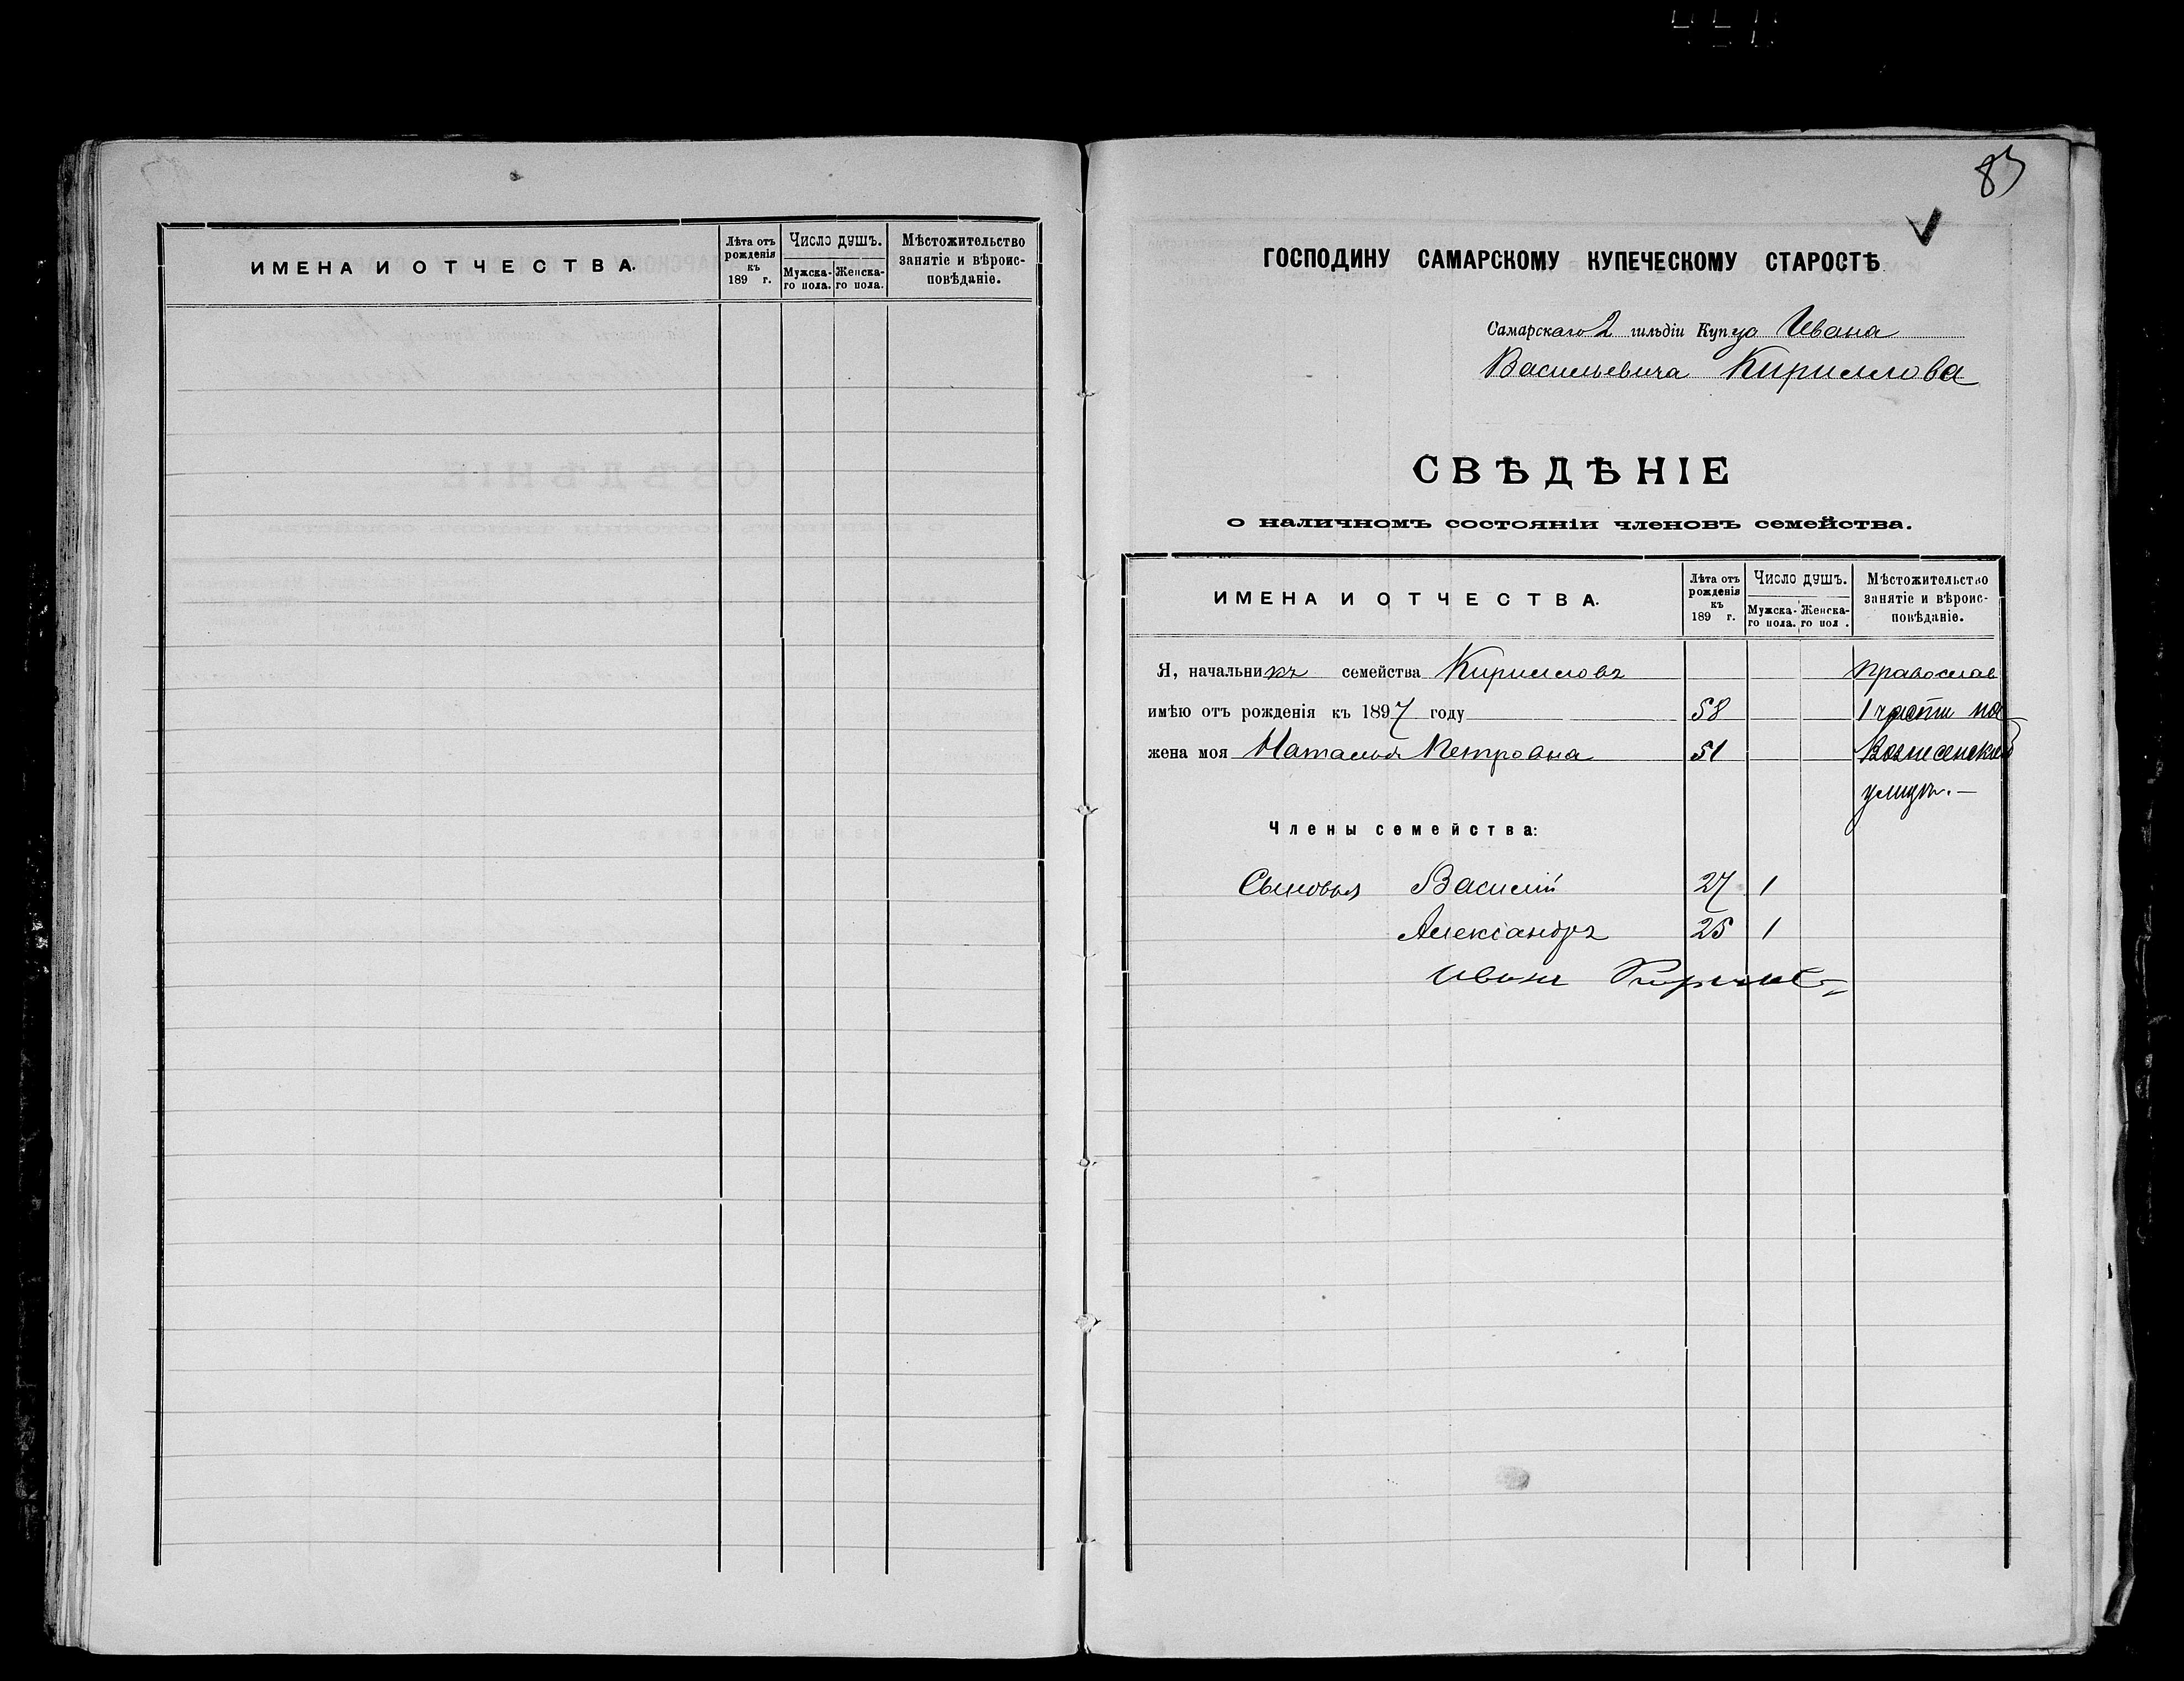 ИМЕНА И ОТЧЕСТВА.
Лѣта отъ рожденія къ 189 г.
Число душъ.
Мужска-го пола.
Женска-го пола.
Мѣстожительство занятіе и вѣроис-повѣданіе.
83
ГОСПОДИНУ САМАРСКОМУ КУПЕЧЕСКОМУ СТАРОСТѢ
Самарскаго 2 гильдіи Купца Ивана
Васильевича Кириллова
СВѢДѢНІЕ
о наличномъ состояніи членовъ семейства.
ИМЕНА И ОТЧЕСТВА.
Лѣта отъ рожденія къ 189 г.
Число душъ.
Мужска-го пола.
Женска-го пол .
Мѣстожительство занятіе и вѣроис-повѣданіе.
Я, начальникъ семейства Кирилловъ Православ
имѣю отъ рожденія къ 1897 году 58 1 части на
жена моя Наталья Петровна 51 Вознесенской
улицѣ.—
Члены семейства:
Сыновья Василій 27 1
Александръ 25 1
Иванъ